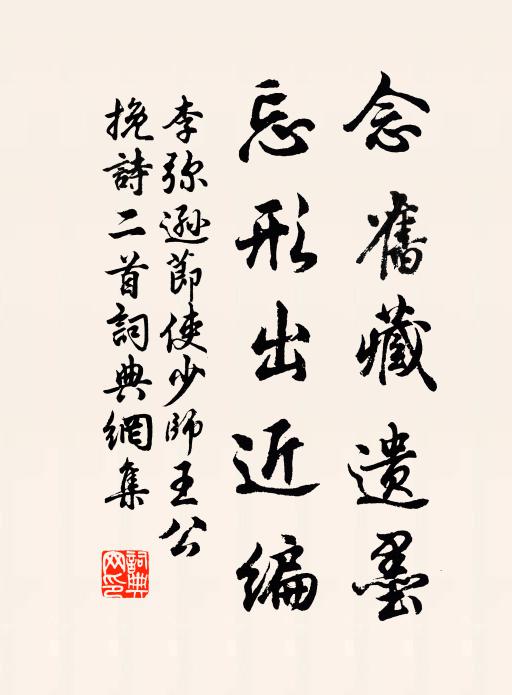 念舊藏遺墨
忘形出近編
李弥遜節使少師王公
挽詩二首詞典網集
詞典網印